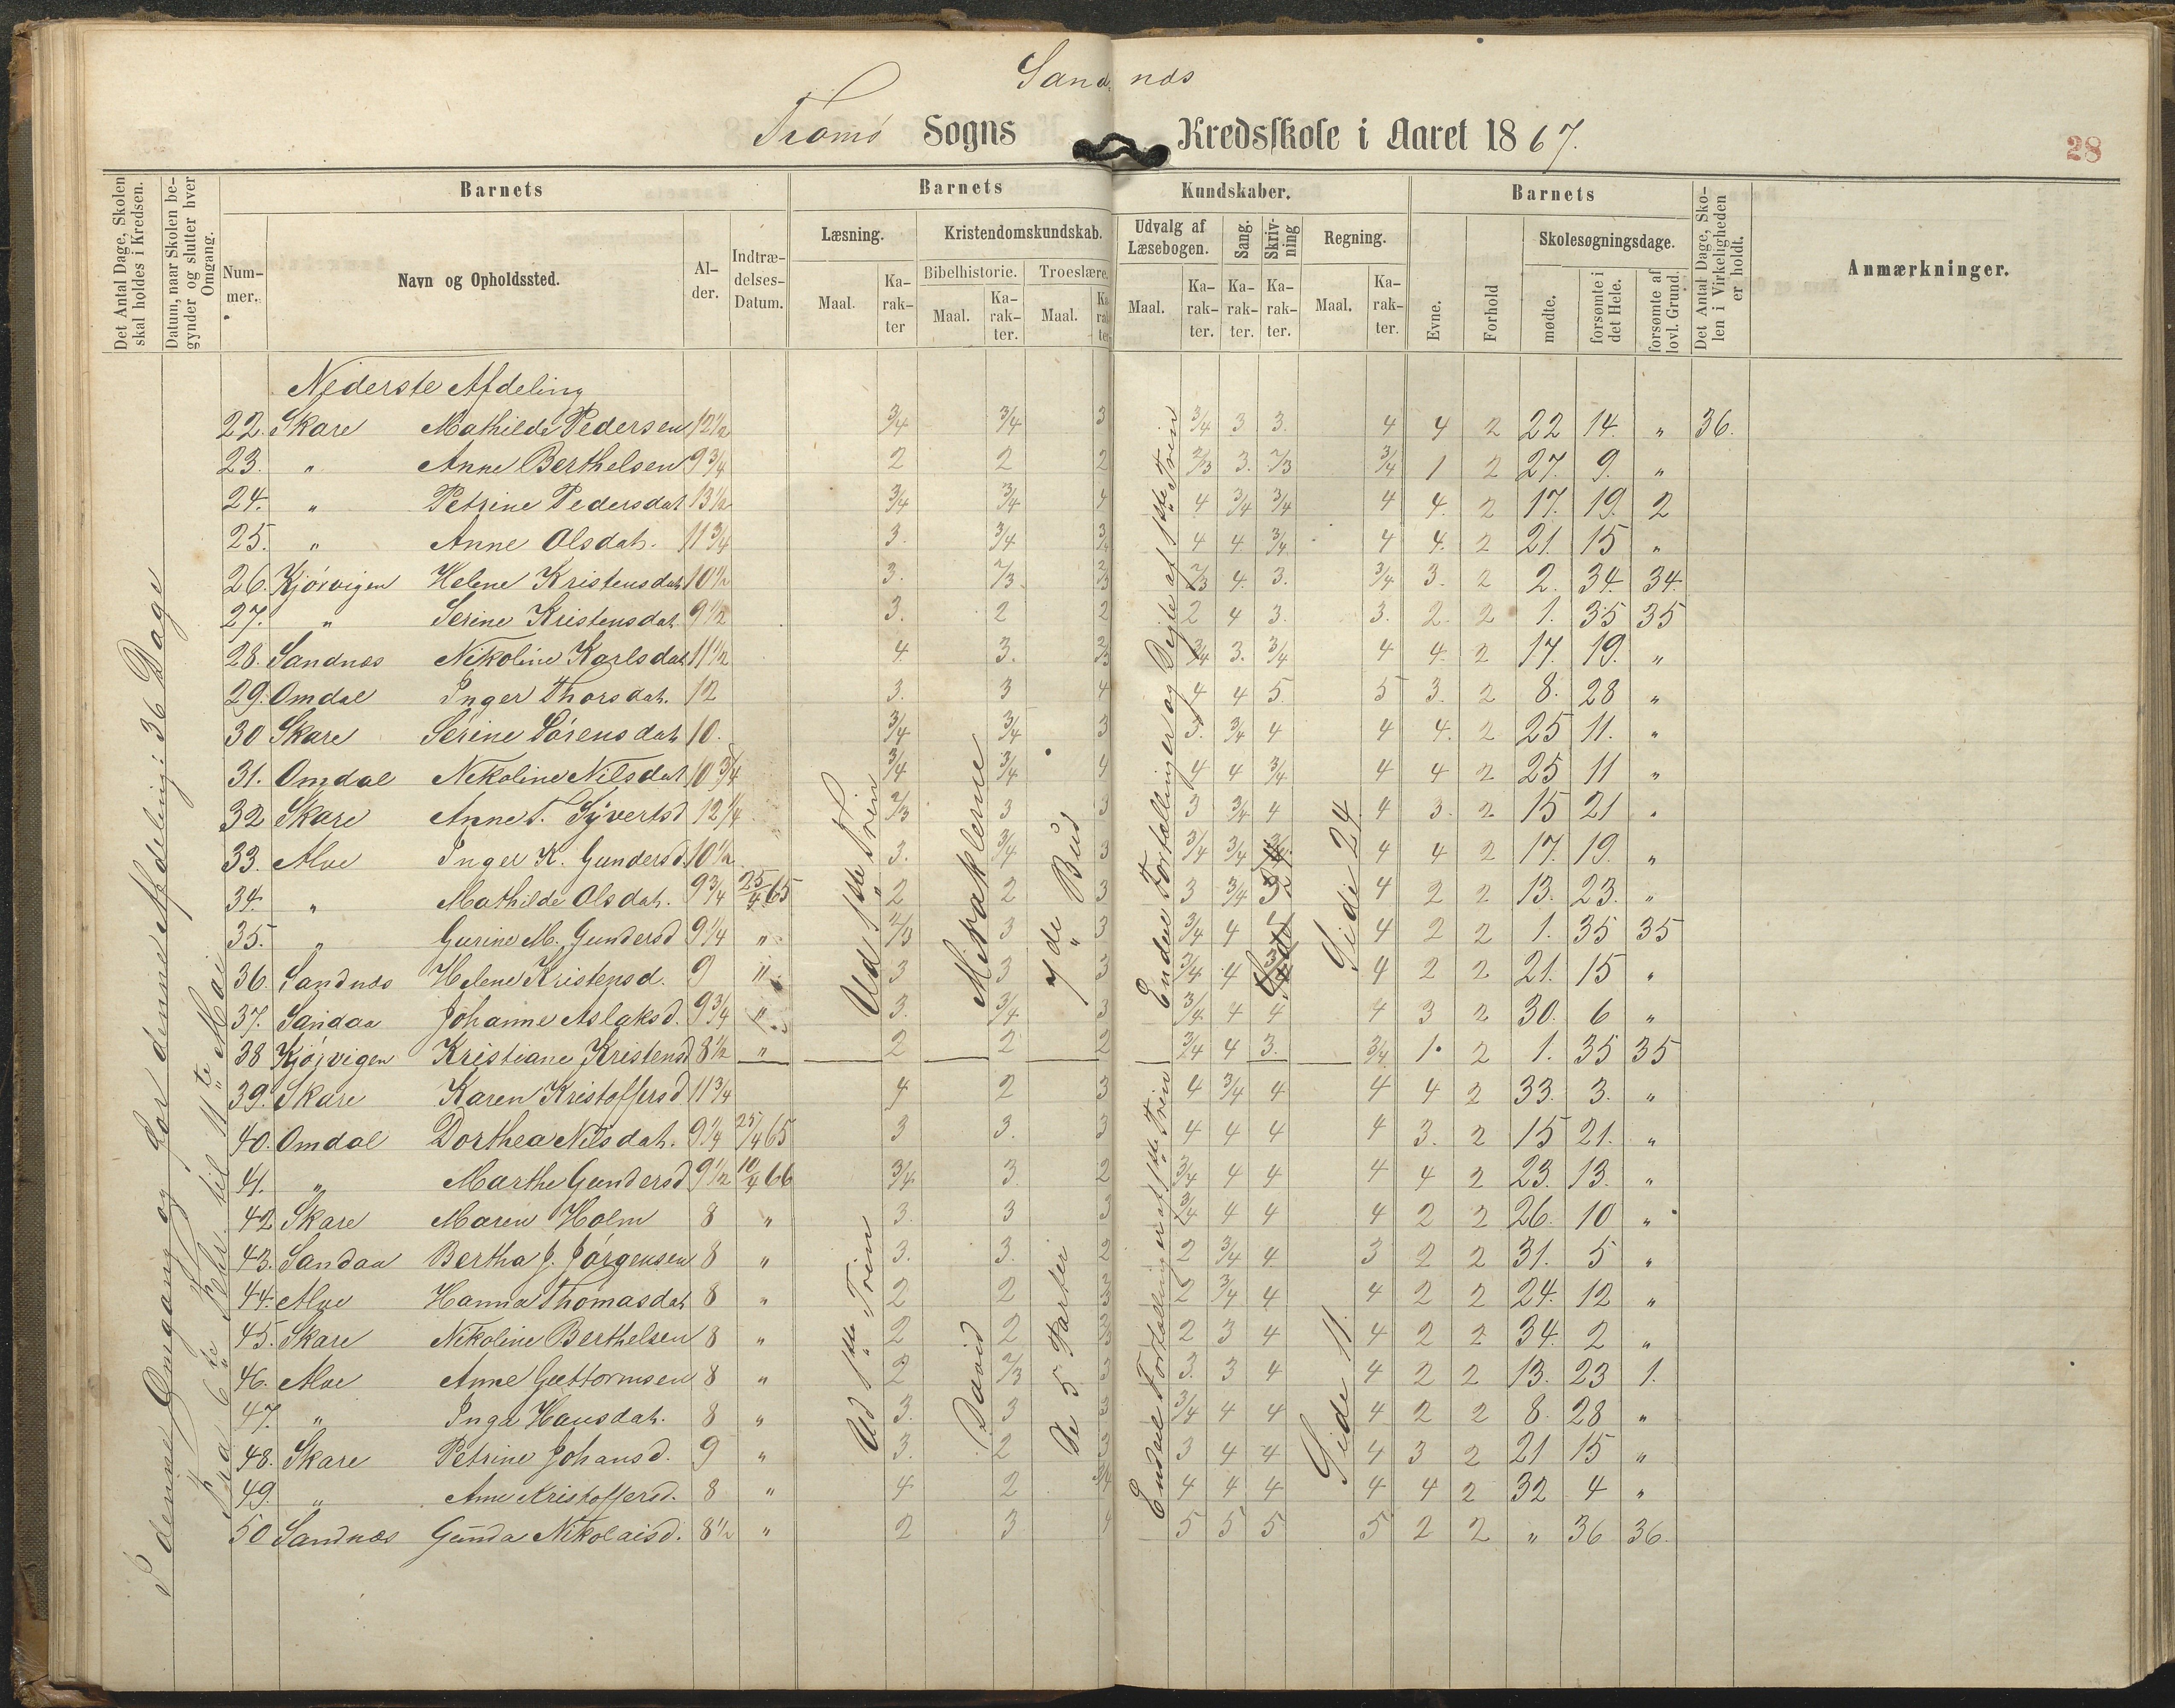 Sandnæs
Tromø Sogns Kredsskole i Aaret 1867.
28
Det Antal Dage, Skolen skal holdes i Kredsen.
Datum, naar Skolen begynder og slutter hver Omgang.
Barnets
Nummer.
Navn og Opholdssted.
Alder.
Indtrædelses-Datum.
Barnets Kundskaber.
Læsning.
Maal.
Karakter
Kristendomskundskab.
Bibelhistorie.
Maal.
Karakter.
Troeslære.
Maal.
Karakter.
Udvalg af Læsebogen.
Maal.
Karakter.
Sang.
Karakter.
Skrivning
Karakter.
Regning.
Maal.
Karakter.
Barnets
Evne.
Forhold
Skolesøgningsdage.
mødte.
forsømte i det Hele.
forsømte af lovl. Grund.
Det Antal Dage, Skolen i Virkeligheden er holdt.
Anmærkninger.
I denne Omgang og for denne Afdeling: 36 Dage
Fra 6te Febr. til 11te Mai
Nederste Afdeling
22. Skare Mathilde Pedersen 12½ 3/4 3/4 3 3/4 3 3. 4 4 2 22 14. „ 36.
23. „ Anne Berthelsen 9¾ 2 2 2 2/3 3. 2/3 3/4 1 2 27. 9. „
24. „ Petrine Pedersdat 13½ 3/4 3/4 4 4 3/4 3/4 4 4. 2 17. 19. 2
25. „ Anne Olsdat. 11¾ 3. 3/4 3/4 4 4 3/4 4 4. 2 21. 15 „
26. Kjørvigen Helene Kristensdat 10½ 3. 2/3. 2/3 2/3 4. 3. 3/4 3. 2 2. 34. 34.
27. „ Serine Kristensdat 9½ 3. 2 2 2 4 3. 3. 2. 2 1. 35 35
28. Sandnæs Nikoline Karlsdat 11½ 4. 3. 2/3 3/4 3. 3/4 4 4. 2 17. 19. „
29. Omdal Inger Thorsdat. 12 3. 3 4 4 4 5. 5 3. 2 8. 28 „
30 Skare Serine Sørensdat 10. 3/4 3/4 3 3. 3/4 4 4 4. 2 25 11. „
31. Omdal Nikoline Nilsdat 10¾ 3/4 3/4 4 4 4 3/4 4 4 2 25 11 „
32 Skare Anne T. Syvertsd 12¼ 2/3 3 3 3 3/4 4 4 3. 2 15 21 „
33. Alve Inger K. Gundersd. 10½ 3. 3/4 3 3/4 3/4 4 4 2 17. 19. „
34. „ Mathilde Olsdat. 9¾ 25/4 65 2 2 3 3 3/4 3 4 2 2 13. 23. „
35. „ Gurine M. Gundersd 9¼ „ 2/3 3 3 3/4 4 4 2 2 1. 35 35
36. Sandnæs Helene Kristensd. 9 „ 3 3 3 3/4 4 4 2 2 21. 15 „
37. Sandaa Johanne Aslaksd. 9¾ „ 3. 3/4 3 3/4 4 4 4 3 2 30. 6 „
38 Kjørvigen Kristiane Kristensd 8½ „ 2 2 2 3/4 4 3. 3/4 1. 2 1. 35 35
39. Skare Karen Kristoffersd 11¾ 4 2 3 4 3/4 4 4 4 2 33. 3. „
40. Omdal Dorthea Nilsdat. 9¼ 25/4 65 3 3. 3 4 4 4 4 3. 2 15 21. „
41. „ Marthe Gundersd 9½ 10/4 66 3/4 3. 2 3/4 4 4 4 4 2 23. 13. „
42 Skare Maren Holm 8 „ 3. 3 3 3/4 4 4 4 2 2 26. 10 „
43. Sandaa Bertha J. Jørgensen 8 „ 3. 3. 2 2 3/4 4 3 2 2 31. 5 „
44. Alve Hanna Thomasdat 8 „ 2 2 3 2 3/4 4 4 2 2 24. 12 „
45. Skare Nikoline Berthelsen 8 „ 2 2 2 3 4 4 2 2 34. 2 „
46. Alve Anne Guttormsen 8 „ 2 2/3 3 3. 3 4 4 2 2 13. 23 1.
47. „ Inga Hansdat. 8 „ 3. 3 3 3/4 4 4 4 2 2 8. 28 „
48. Skare Petrine Johansd. 9 „ 3. 2 3 3 4 4 4 3 2 21 15 „
49. „ Anne Kristoffersd. 8 „ 4 2 3/4 4 4 4 4 4 2 32 4 „
50 Sandnæs Gunda Nikolaisd. 8½ „ 2 3 4 5 5 5 5 2 2 „ 36 36.
Ud 1ste Trin
Miraklerne
7de Bud
Endeel Fortællinger og Digte af 1ste Trin
Side 24
Ud 1ste Trin
David
De 5 Parter
Endeel Fortællinger af 1ste Trin
Side 11.